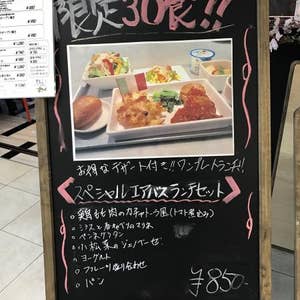 限定30食!!
お得なデザート付き!!ワンプレートランチ!!
スペシャルエアバスランチセット
○鶏もも肉のカチャトーラ風(トマト煮込み)
○ペンネグラタン
○小松菜のジェノベーゼ
○ヨーグルト
○フルーツ盛り合わせ
○パン
¥850-